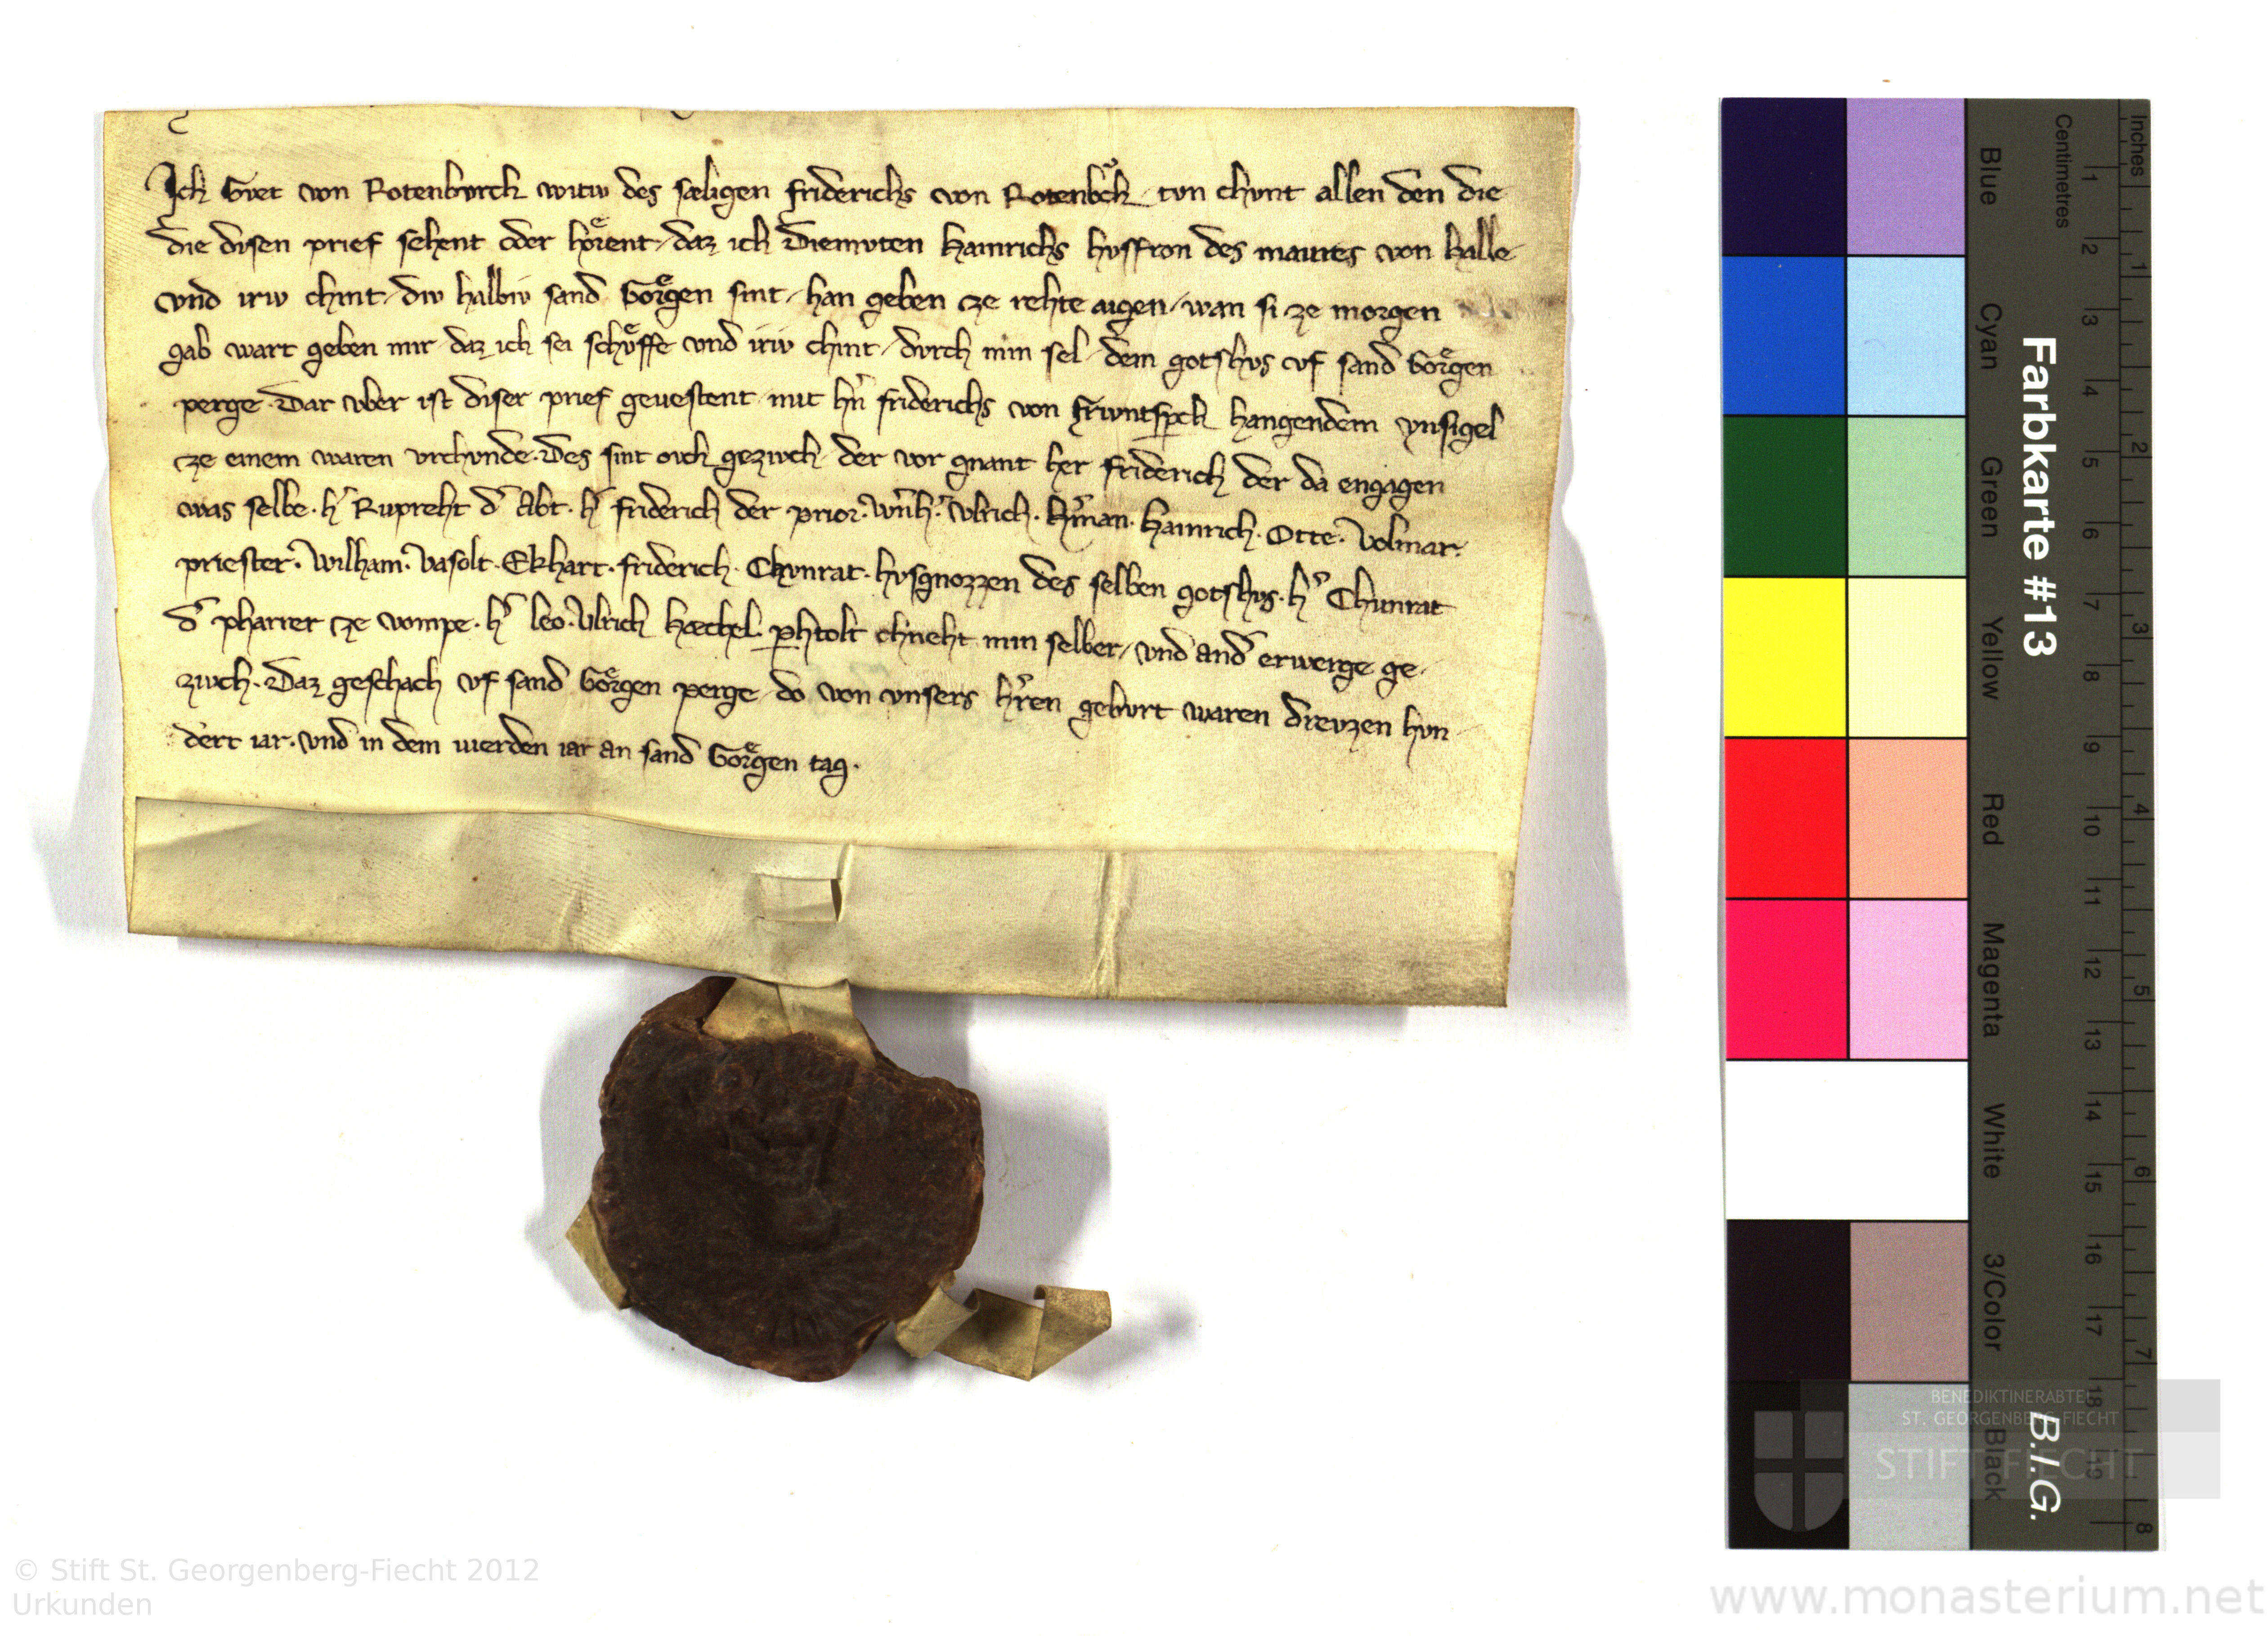 Ich Gret von Rotenbvrch witiw des sæligen friderichs von Rotenbͮch tvn chvnt allen den die
die disen prief sehent oder hoͤrent daz ich Diemvten Hainrichs hvsfron des mautes von Halle
vnd iriv chint div halbiv sand Goͤrgen sint han geben ze rehte aigen wan si ze morgen
gab wart geben mir daz ich sei schvͤffe vnd iriv chint dvrch min sel dem gotshvs vf sand Goͤrgen
perge. Dar vber ist diser prief gevestent mit hn̄ friderichs von friwntsperch hangendem ynsigel
ze einem waren vrchvnde. Des sint ovch gezivch der vor gnant her friderich der da engagen
was selbe. h͛ Rupreht d͛ Abt. h͛ friderich der prior. Wn̄h͛. Vlrich. H͛man. Hainrich. Otte. Volmar.
priester. Wilham. Vasolt. Ekhart. friderich. Chvnrat. hvsgnozzen des selben gotshvs. h͛ Chunrat
d͛ pharrer ze vompe. h͛ leo. Vlrich Hæchel. perhtolt chneht min selber vnd and͛ erwerge ge
zivch. Daz geschach vf sand Goͤrgen perge do von vnsers h͛ren gebvrt waren drevzen hvn
dert iar. vnd in dem vierden iar an sand Goͤrgen tag.
Farbkarte #13
B.I.G.
Inches
Centimetres
1 2 3 4 5 6 7 8 9 10 11 12 13 14 15 16 17 18 19
1 2 3 4 5 6 7 8
Blue
Cyan
Green
Yellow
Red
Magenta
White
3/Color
Black
BENEDIKTINERABTEI
ST. GEORGENBERG-FIECHT
STIFT FIECHT
© Stift St. Georgenberg-Fiecht 2012
Urkunden
www.monasterium.net